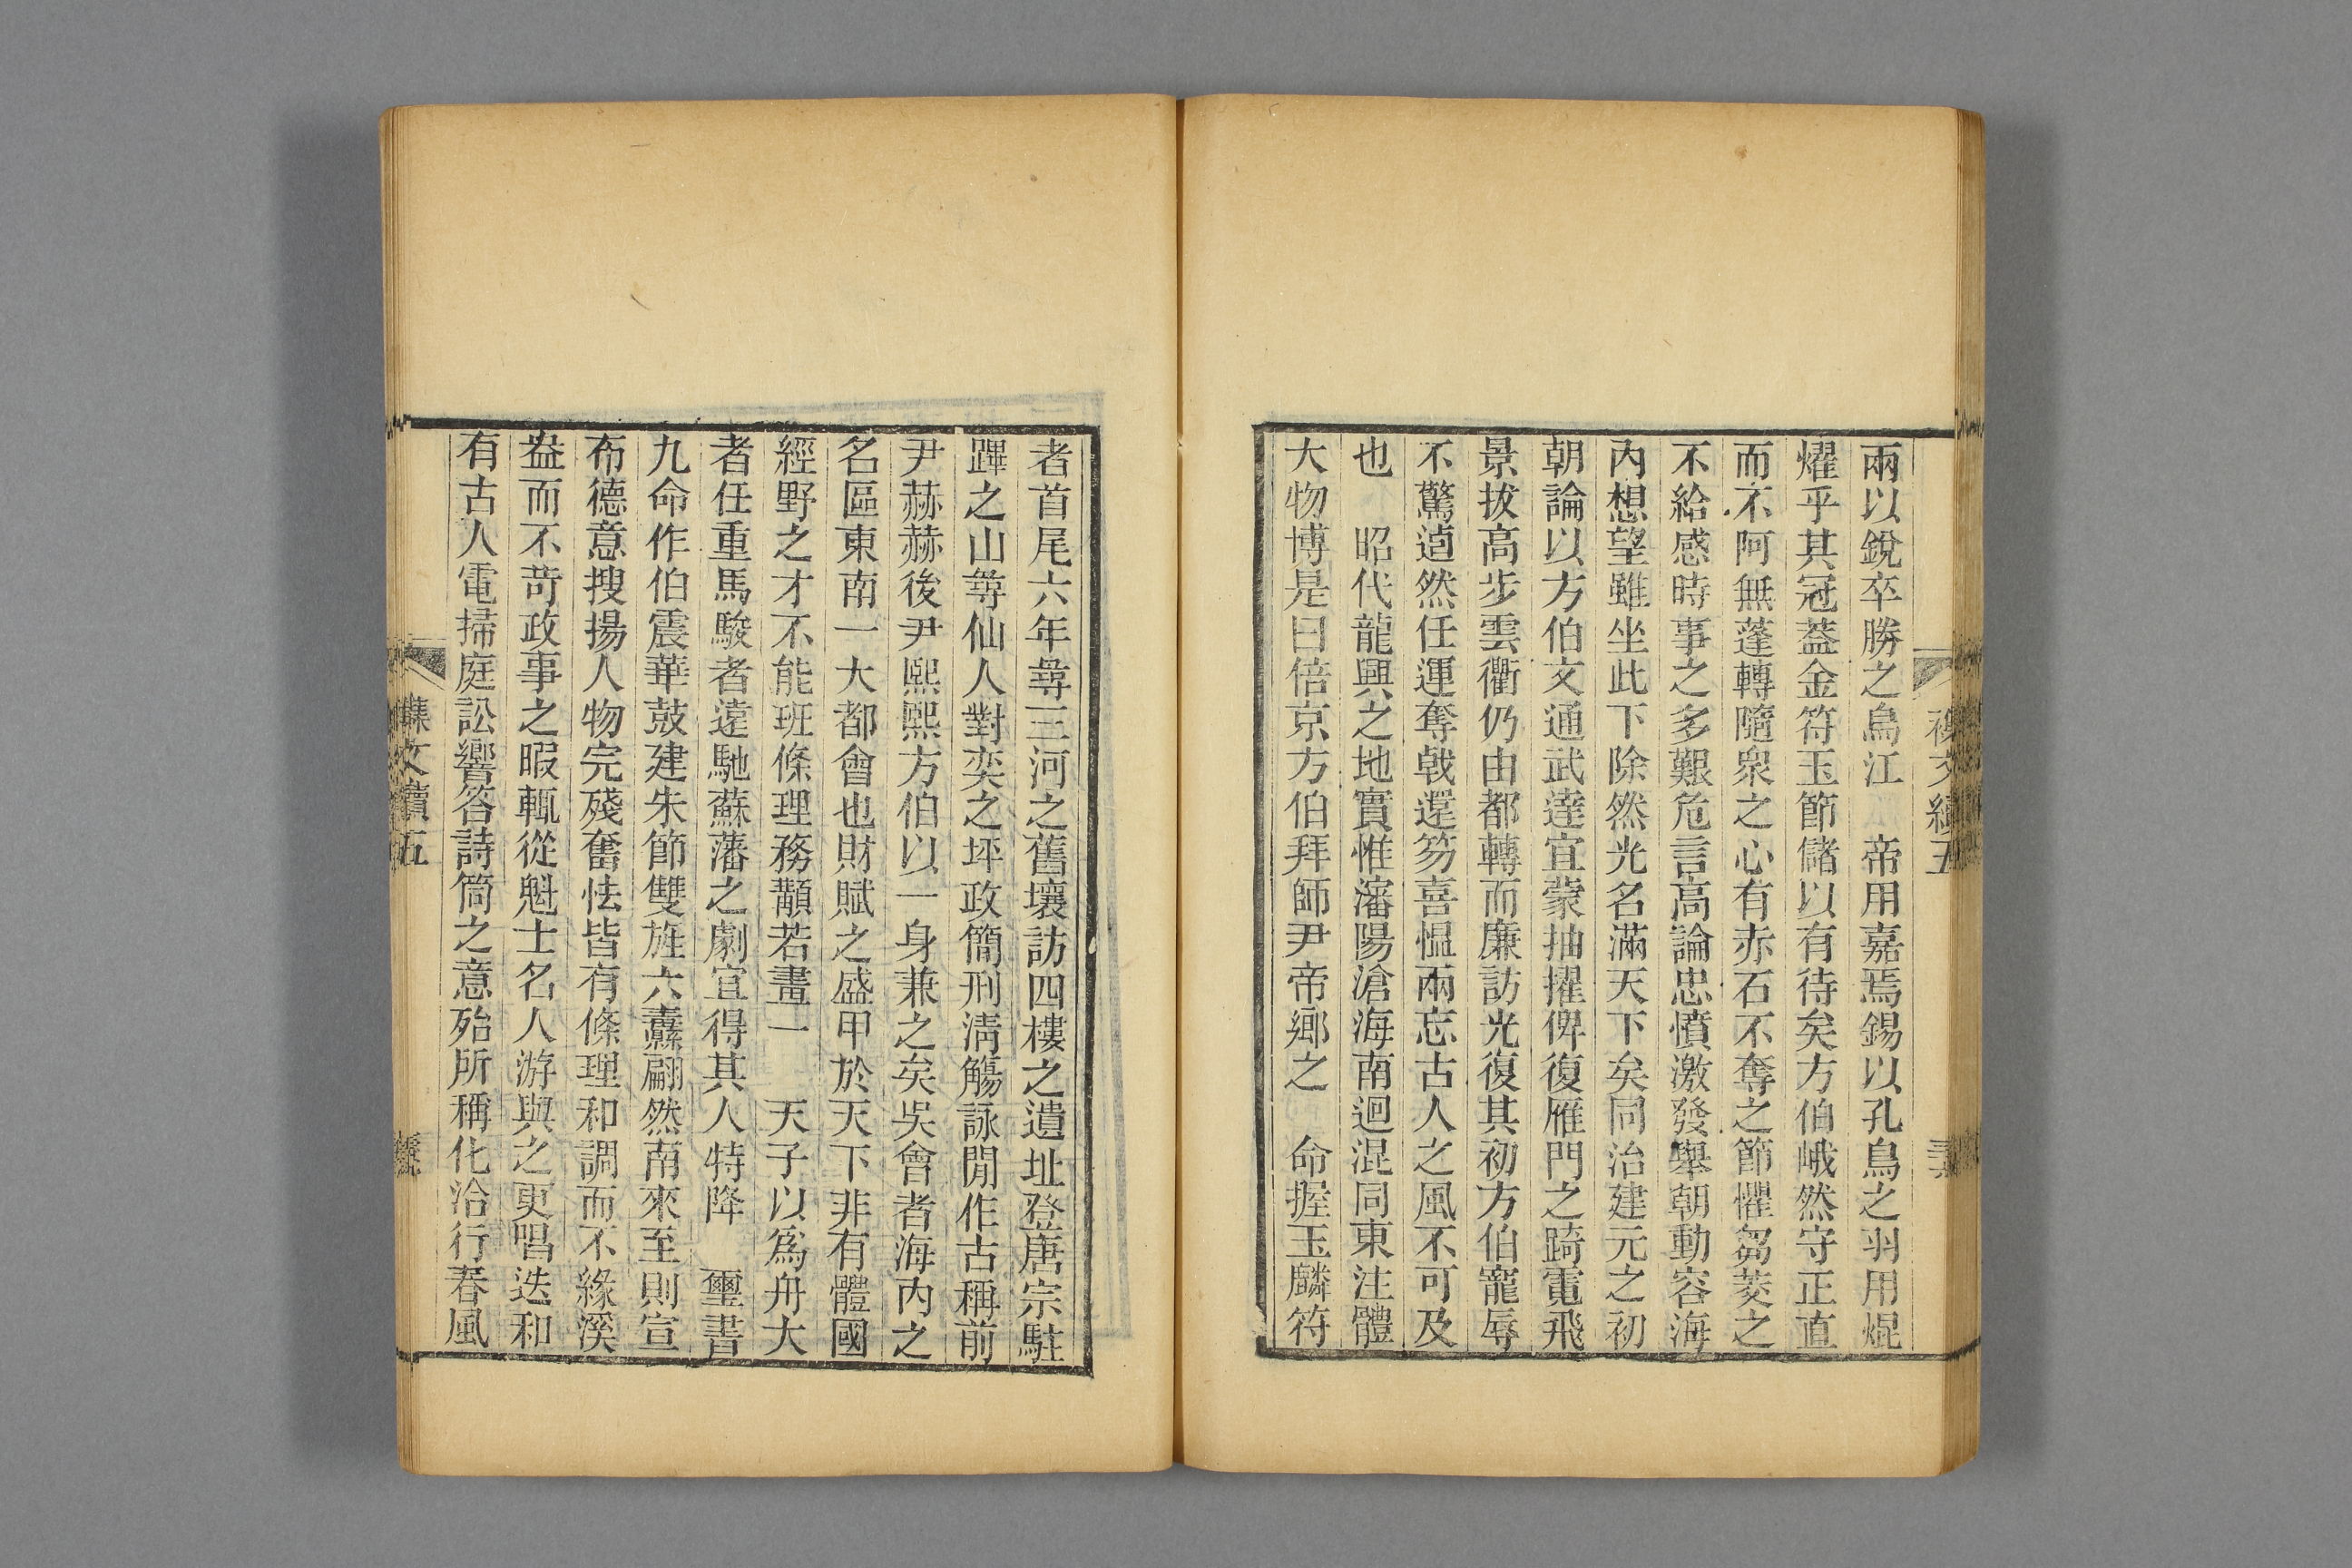 兩以銳卒勝之烏江　帝用嘉焉錫以孔鳥之羽用焜
燿乎其冠蓋金符玉節儲以有待矣方伯峨然守正直
而不阿無蓬轉隨衆之心有赤石不奪之節懼芻菱之
不給感時事之多艱危言高論忠憤激發舉朝動容海
內想望雖坐此下除然光名滿天下矣同治建元之初
朝論以方伯文通武達宜蒙抽擢俾復雁門之踦電飛
景拔高步雲衢仍由都轉而廉訪光復其初方伯寵辱
不驚逌然任運奪戟還笏喜慍兩忘古人之風不可及
也　昭代龍興之地實惟瀋陽滄海南迴混同東注體
大物博是曰倍京方伯拜師尹帝鄉之　命握玉麟符
者首尾六年尋三河之舊壤訪四樓之遺址登唐宗駐
蹕之山尋仙人對奕之坪政簡刑淸觴詠閒作古稱前
尹赫赫後尹熙熙方伯以一身兼之矣吳會者海內之
名區東南一大都會也財賦之盛甲於天下非有體國
經野之才不能班條理務顜若畫一　天子以爲舟大
者任重馬駿者遠馳蘇藩之劇宜得其人特降　璽書
九命作伯震華鼓建朱節雙旌六纛翩然南來至則宣
布德意搜揚人物完殘奮怯皆有條理和調而不緣溪
盎而不苛政事之暇輒從魁士名人游與之更唱迭和
有古人電掃庭訟響答詩筒之意殆所稱化洽行春風
文續五